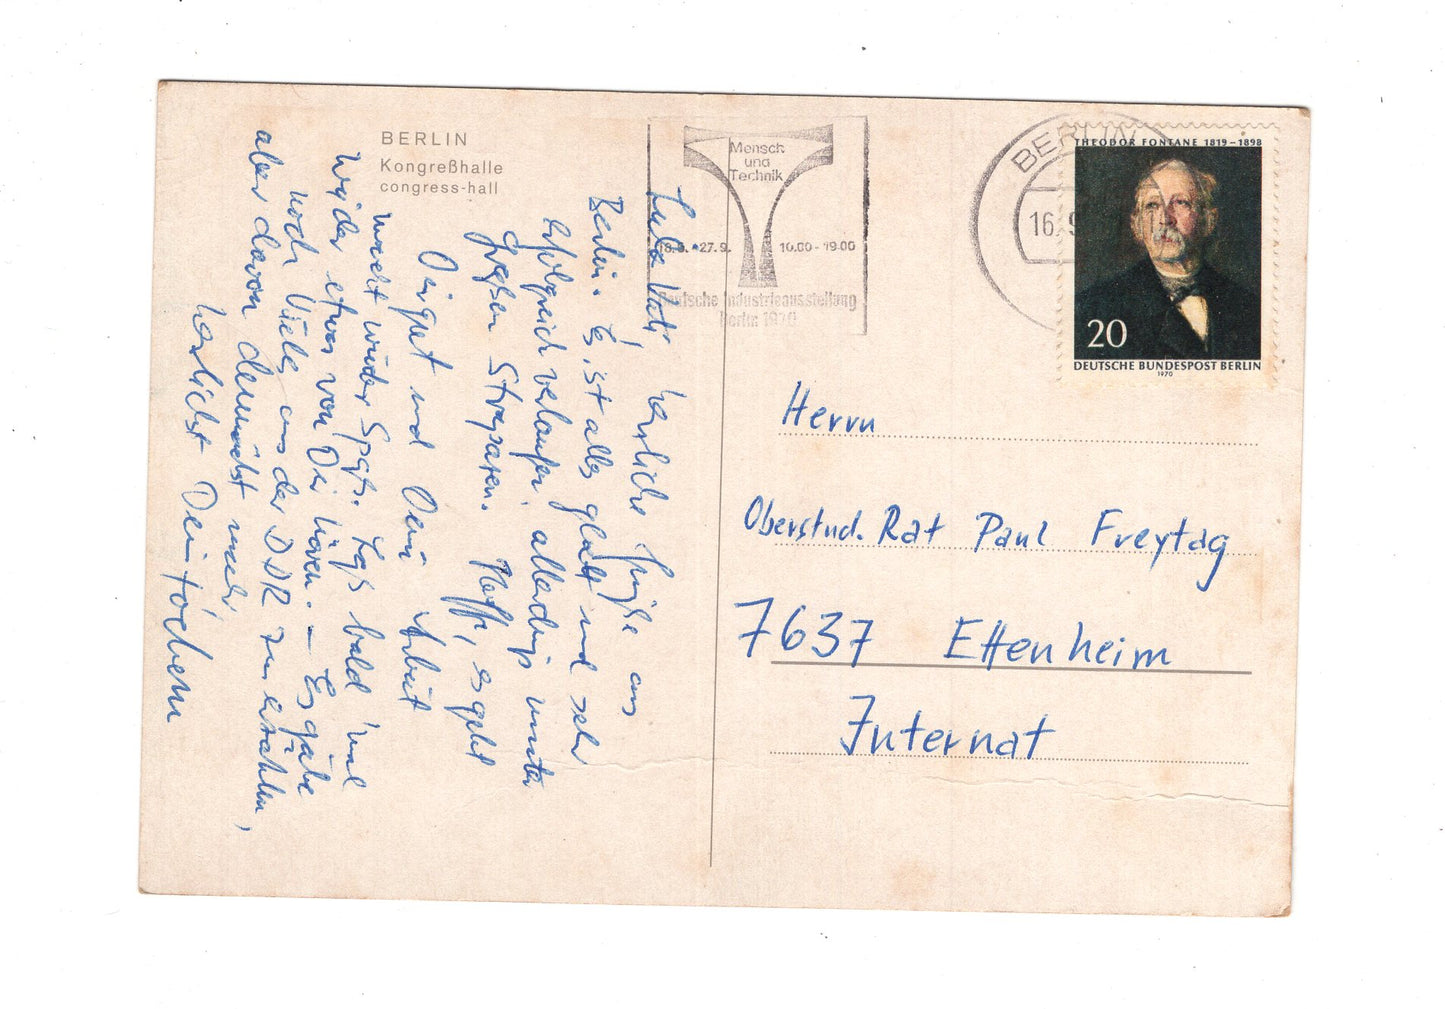 BERLIN
Kongreßhalle
congress-hall
Mensch
und
Technik
18.9.-27.9. 10.00-19.00
Deutsche Industrieausstellung
Berlin 1970
BERLIN
16.9
THEODOR FONTANE 1819-1898
20
DEUTSCHE BUNDESPOST BERLIN
1970
Herrn
Oberstud. Rat Paul Freytag
7637 Ettenheim
Internat
herzliche Grüße aus
Berlin. Es ist alles glatt und sehr
erfolgreich verlaufen, allerdings unter
großen Strapazen. Hoffe, es geht
Dir gut und Dein Arbeit
macht wieder Spaß. Laß bald mal
wieder etwas von Dir hören. – Es gäbe
noch Vieles aus der DDR zu erzählen,
aber davon demnächst mehr
herzlichst Dein Jochem